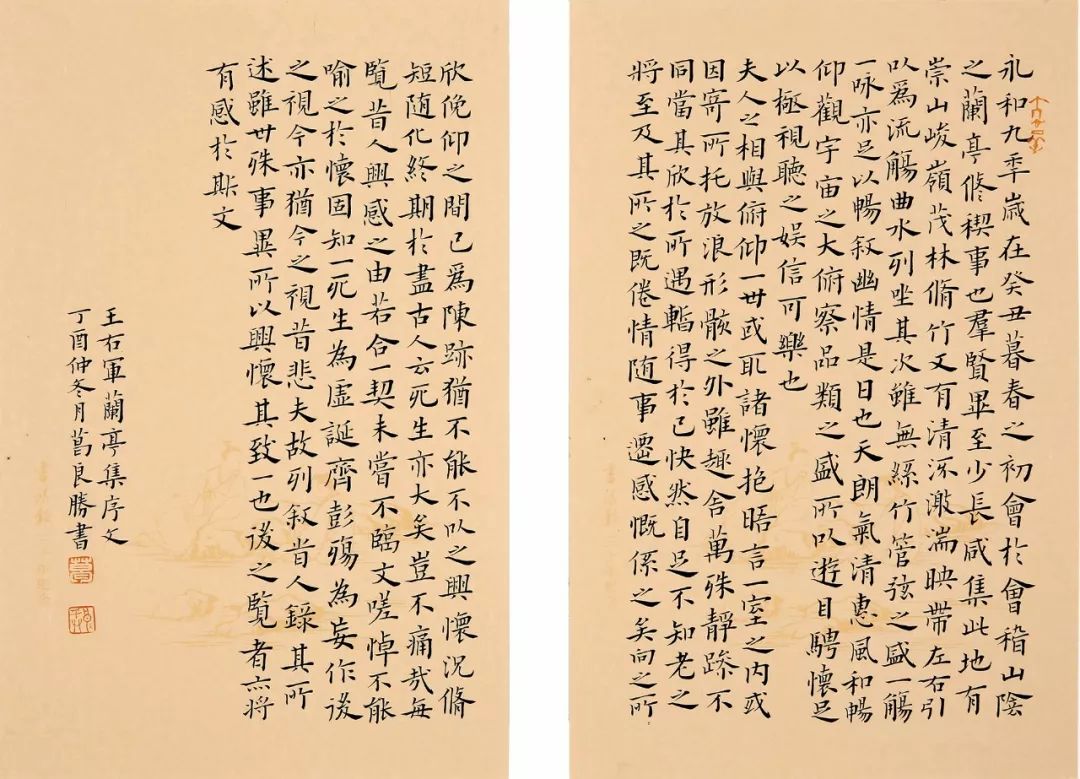 永和九季歲在癸丑暮春之初會於會稽山陰
之蘭亭脩稧事也羣賢畢至少長咸集此地有
崇山峻嶺茂林脩竹又有清流激湍映帶左右引
以爲流觴曲水列坐其次雖無絲竹管弦之盛一觴
一咏亦足以暢叙幽情是日也天朗氣清惠風和暢
仰觀宇宙之大俯察品類之盛所以遊目騁懷足
以極視聽之娱信可樂也
夫人之相與俯仰一世或取諸懷抱晤言一室之内或
因寄所托放浪形骸之外雖趣舍萬殊靜躁不
同當其欣於所遇暫得於己快然自足不知老之
將至及其所之既倦情随事遷感慨係之矣向之所
欣俛仰之間已爲陳跡猶不能不以之興懷況脩
短随化終期於盡古人云死生亦大矣豈不痛哉每
覽昔人興感之由若合一契未嘗不臨文嗟悼不能
喻之於懷固知一死生為虚誕齊彭殤為妄作後
之視今亦猶今之視昔悲夫故列叙昔人錄其所
述雖世殊事異所以興懷其致一也後之覽者亦將
有感於斯文
王右軍蘭亭集序文
丁酉仲冬月葛良勝書